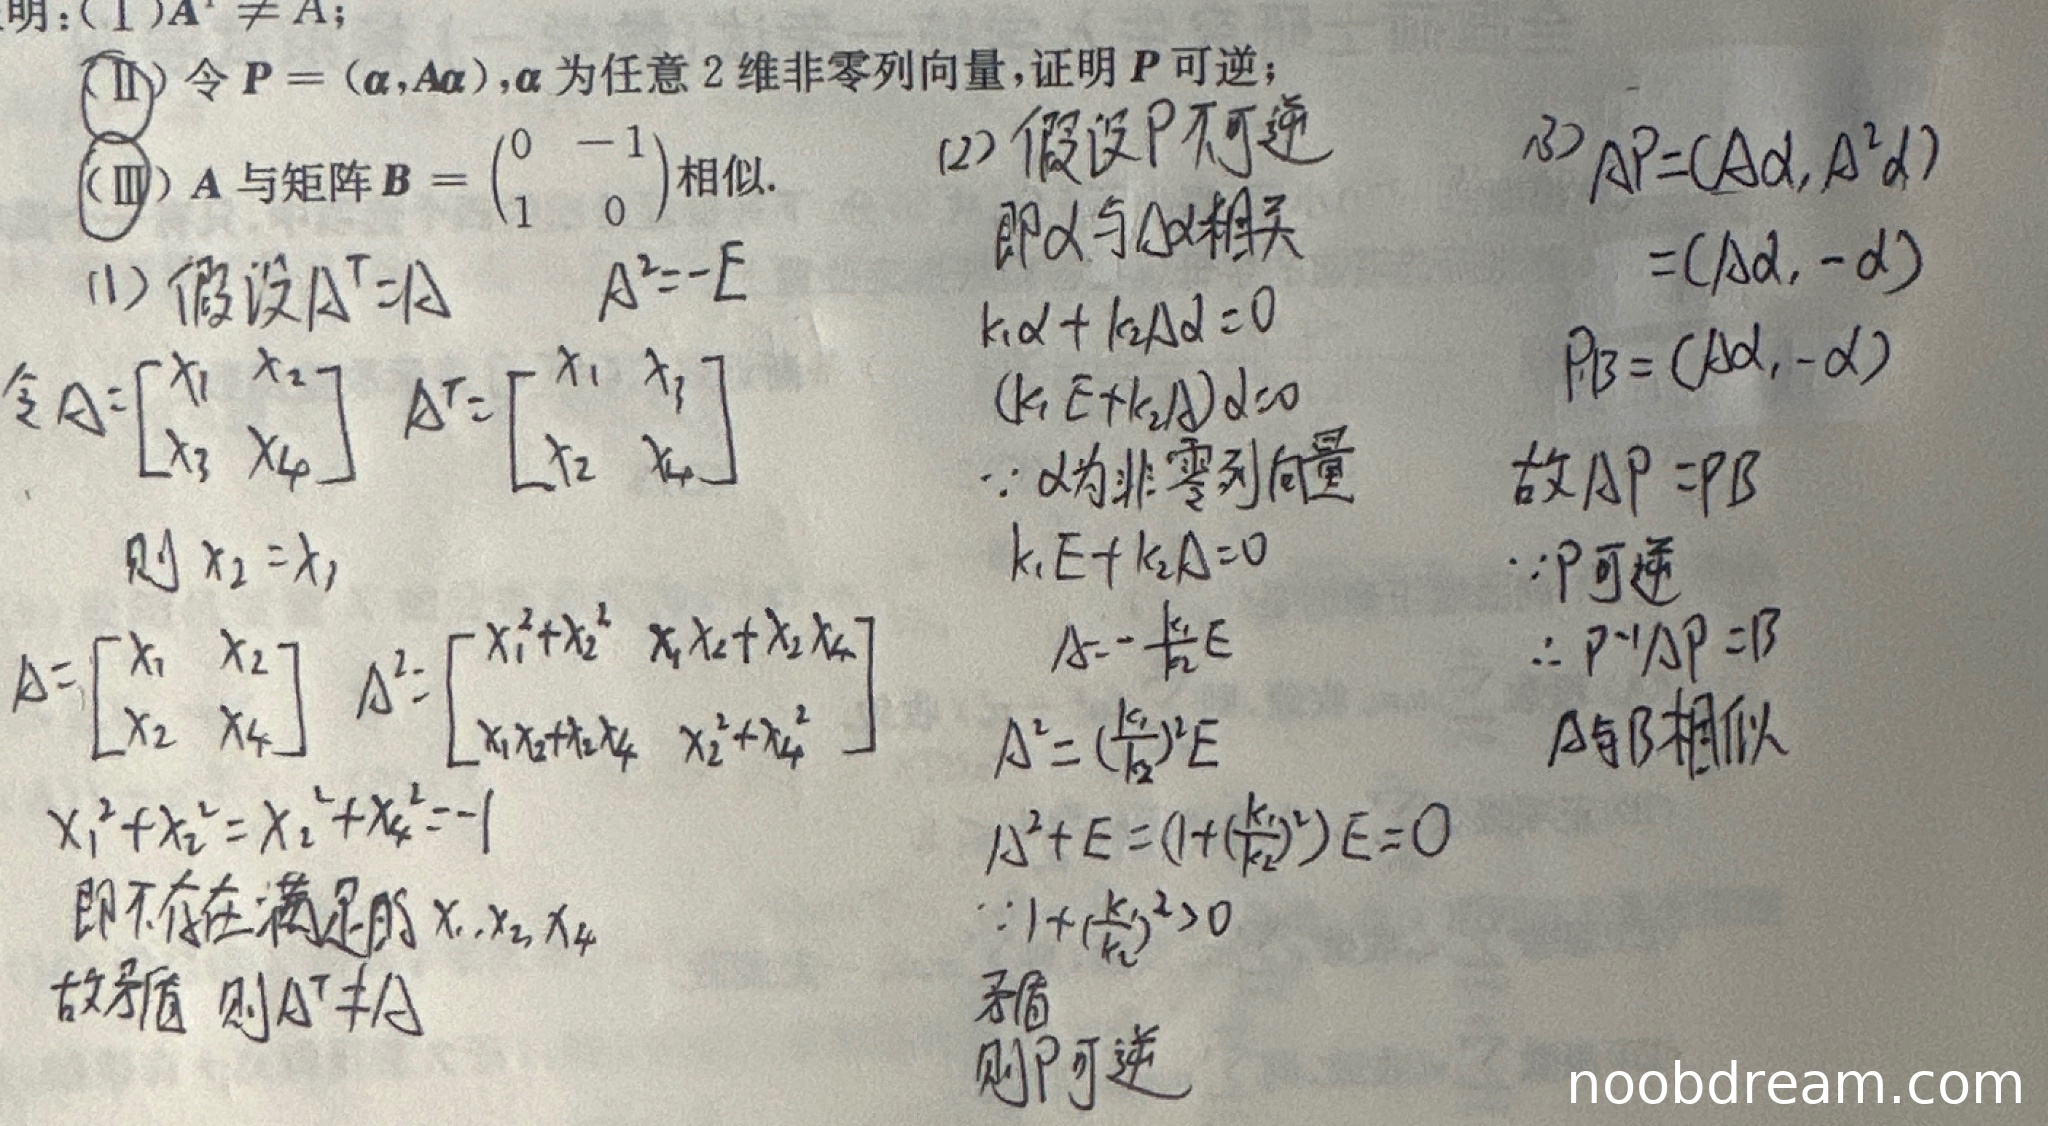 明:(Ⅰ)Aᵀ ≠ A;
(Ⅱ) 令 P = (α,Aα),α 为任意 2 维非零列向量,证明 P 可逆;
(Ⅲ) A 与矩阵 B = (0 −1
1 0) 相似.
(1) 假设Aᵀ=A A²=-E
令A=[x₁ x₂ Aᵀ=[x₁ x₃
x₃ x₄] x₂ x₄]
则 x₂=x₃
A=[x₁ x₂ A²=[x₁²+x₂² x₁x₂+x₂x₄
x₂ x₄] x₁x₂+x₂x₄ x₂²+x₄²]
x₁²+x₂²=x₂²+x₄²=-1
即不存在满足的 x₁,x₂,x₄
故矛盾 则Aᵀ≠A
(2) 假设P不可逆
即α与Aα相关
k₁α+k₂Aα=0
(k₁E+k₂A)α=0
∵α为非零列向量
k₁E+k₂A=0
A=-k₁/k₂E
A²=(k₁/k₂)²E
A²+E=(1+(k₁/k₂)²)E=0
∵1+(k₁/k₂)²>0
矛盾
则P可逆
(3) AP=(Aα,A²α)
=(Aα,-α)
PB=(Aα,-α)
故AP=PB
∵P可逆
∴P⁻¹AP=B
A与B相似
noobdream.com